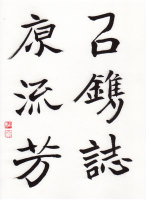 召鐫誌
原流芳